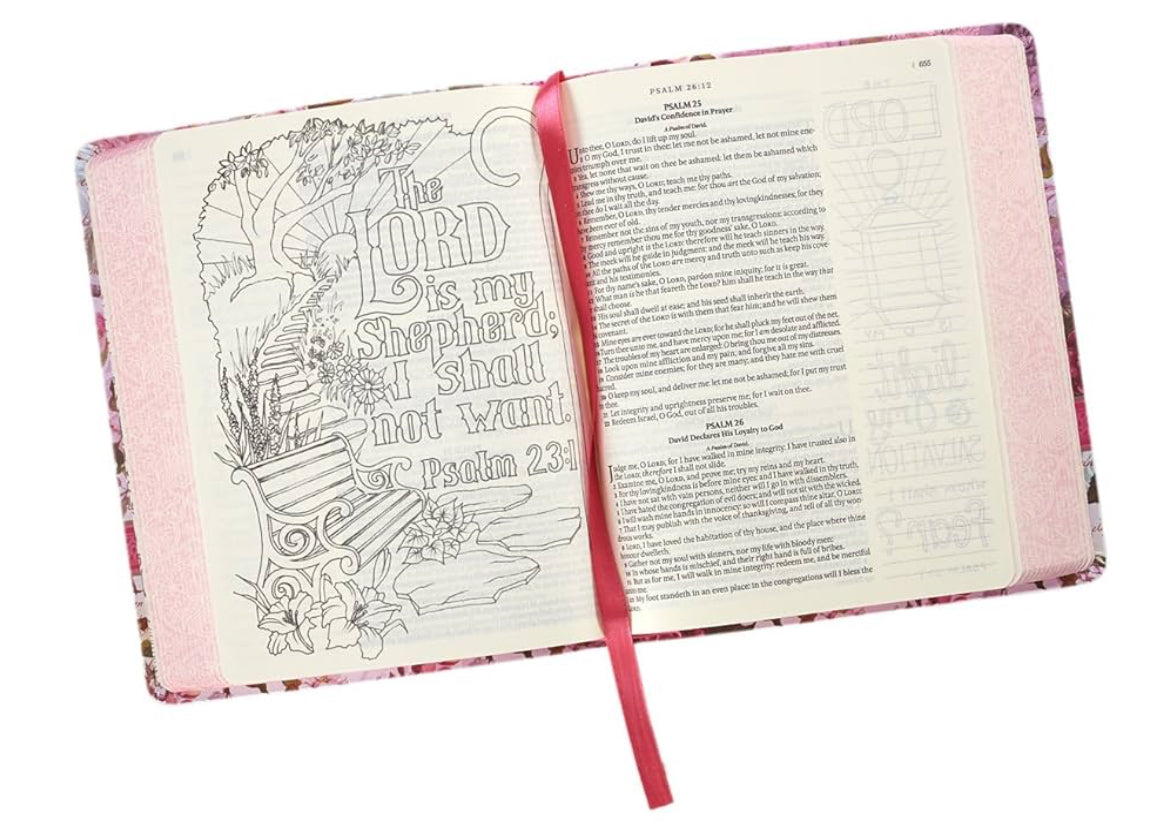 The
LORD
is my
Shepherd;
I shall
not want.
Psalm 23:1
PSALM 26:12
655
PSALM 25
David's Confidence in Prayer
A Psalm of David.
Unto thee, O LORD, do I lift up my soul.
2 O my God, I trust in thee: let me not be ashamed, let not mine ene-
triumph over me.
3 Yea, let none that wait on thee be ashamed: let them be ashamed which
transgress without cause.
4 Shew me thy ways, O LORD; teach me thy paths.
5 Lead me in thy truth, and teach me: for thou art the God of my salvation;
on thee do I wait all the day.
6 Remember, O LORD, thy tender mercies and thy lovingkindnesses; for they
have been ever of old.
7 Remember not the sins of my youth, nor my transgressions: according to
thy mercy remember thou me for thy goodness' sake, O LORD.
8 Good and upright is the LORD: therefore will he teach sinners in the way.
9 The meek will he guide in judgment: and the meek will he teach his way.
10 All the paths of the LORD are mercy and truth unto such as keep his cove-
and his testimonies.
11 For thy name's sake, O LORD, pardon mine iniquity; for it is great.
12 What man is he that feareth the LORD? him shall he teach in the way that
shall choose.
13 His soul shall dwell at ease; and his seed shall inherit the earth.
14 The secret of the LORD is with them that fear him; and he will shew them
covenant.
15 Mine eyes are ever toward the LORD; for he shall pluck my feet out of the net.
16 Turn thee unto me, and have mercy upon me; for I am desolate and afflicted.
17 The troubles of my heart are enlarged: O bring thou me out of my distresses.
18 Look upon mine affliction and my pain; and forgive all my sins.
19 Consider mine enemies; for they are many; and they hate me with cruel
hatred.
20 O keep my soul, and deliver me: let me not be ashamed; for I put my trust
in thee.
21 Let integrity and uprightness preserve me; for I wait on thee.
22 Redeem Israel, O God, out of all his troubles.
PSALM 26
David Declares His Loyalty to God
A Psalm of David.
Judge me, O LORD; for I have walked in mine integrity: I have trusted also in
the LORD; therefore I shall not slide.
2 Examine me, O LORD, and prove me; try my reins and my heart.
3 For thy lovingkindness is before mine eyes: and I have walked in thy truth.
4 I have not sat with vain persons, neither will I go in with dissemblers.
5 I have hated the congregation of evil doers; and will not sit with the wicked.
6 I will wash mine hands in innocency: so will I compass thine altar, O LORD:
7 That I may publish with the voice of thanksgiving, and tell of all thy won-
drous works.
8 LORD, I have loved the habitation of thy house, and the place where thine
honour dwelleth.
9 Gather not my soul with sinners, nor my life with bloody men:
10 In whose hands is mischief, and their right hand is full of bribes.
11 But as for me, I will walk in mine integrity: redeem me, and be merciful
unto me.
12 My foot standeth in an even place: in the congregations will I bless the
LORD.